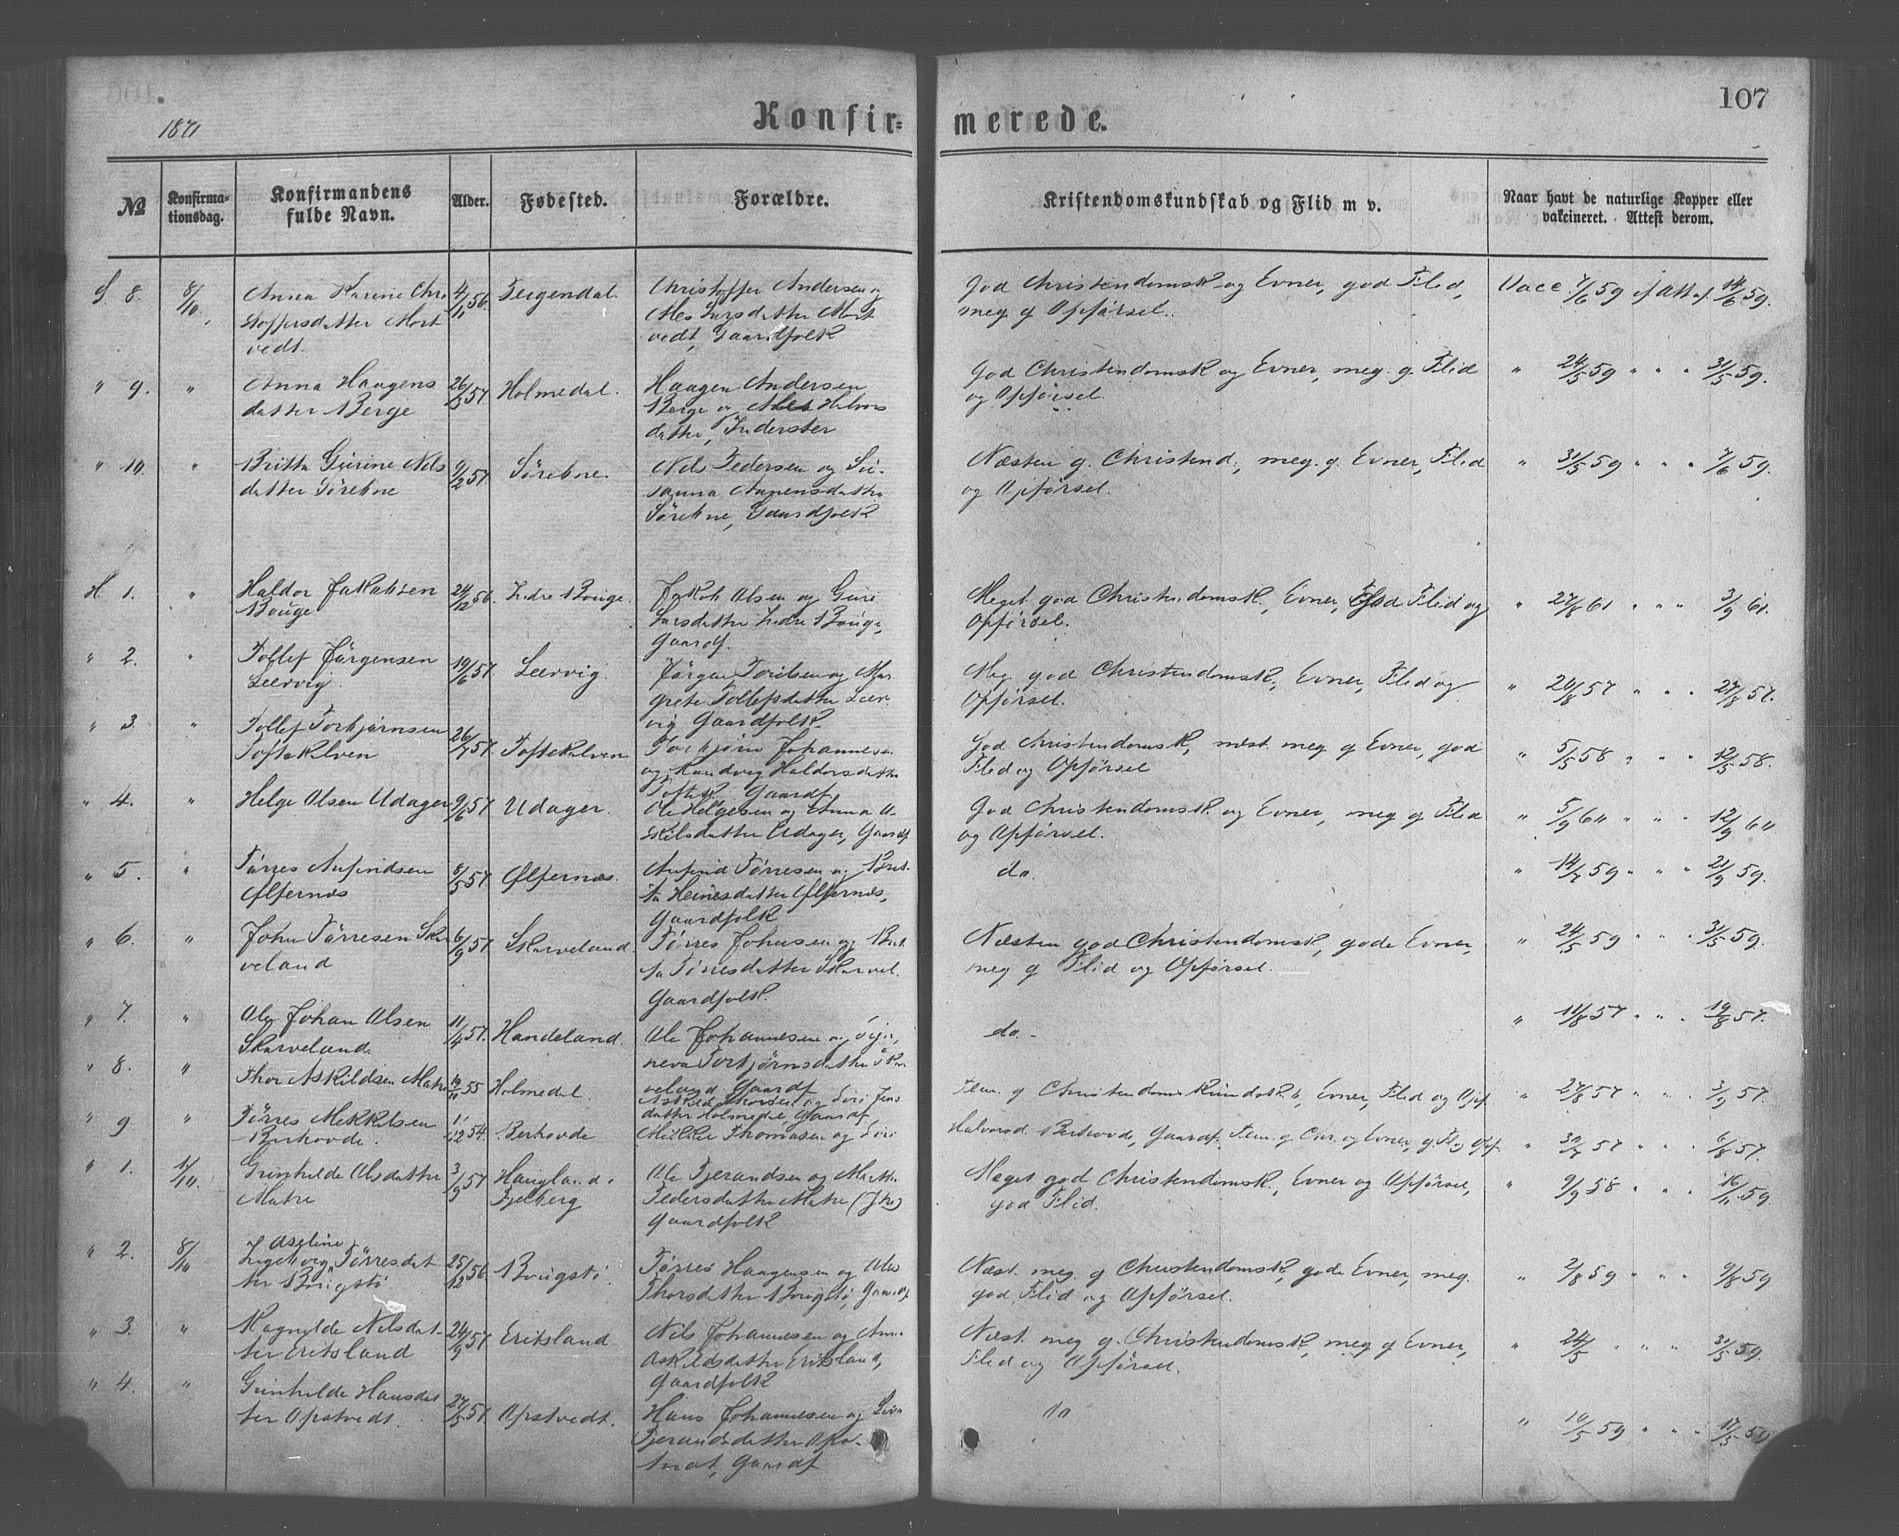 107
1871
Konfir-
merede.
№
Konfirma-
tionsdag.
Konfirmandens
fulde Navn.
Alder.
Fødested.
Forældre.
Kristendomskundskab og Flid m v.
Naar havt de naturlige Kopper eller
vakcineret. Attest derom.
S 8. 8/10 Anna Karine Chri 4/11 56. Teigendal. Christoffer Andersen og God Christendomsk. og Evner, god Flid, Vacc. 7/6 59 if Att af 14/6 59.
stoffersdatter Mort Ales Larsdatter Mort meg. g Opførsel.
vedt. vedt, Gaardfolk
" 9. " Anna Haagens 26/3 57 Holmedal. Haagen Andersen God Christendomsk og Evner, meg. g. Flid " 24/5 59 " " " 31/5 59.
datter Berge Berge og Ales Halvors og Opførsel.
datter, Inderster
" 10. " Britta Gurine Nils 9/2 57 Sørebne. Nels Pedersen og Su- Næsten g. Christend., meg. g. Evner, Flid " 31/5 59 " " " 7/6 59.
datter Sørebne sanna og Opførsel.
Sørebne, Gaardfolk
H 1. " Haldor Jakobsen 24/12 56. Indre Bouge. Jakob Olsen og Guri Meget god Christendomsk., Evner, Flid og " 27/8 61 " " 3/9 61.
Bouge Larsdatter Indre Bouge, Opførsel.
Gaardf.
" 2. " Tollef Jørgensen 19/6 57. Leervig. Jørgen og Mar- Meg. god Christendomsk., Evner, Flid og " 20/8 57 " " " 27/8 57.
Leervig. grete Tollefsdatter Leer- Opførsel.
vig Gaardfolk.
" 3. " Tollef Torbjørnsen 26/7 57. Toftekalven Torbjørn Johannesen God Christendomsk, næst. meg. g Evner, god " 5/5 58 " " " 12/5 58.
Toftekalven og Randveig Haldorsdatter Flid og Opførsel
Gaardf
" 4. " Helge Olsen Udager 9/6 57 Udager. Ole Helgesen og Anna A- God Christendomsk og Evner, meg g Flid " 5/9 60 " " " 12/9 60
skilsdatter Udager, Gaardf og Opførsel.
" 5. " Tørres Anfindsen 8/5 57. Ølfernæs. Anfind Tørresen og Brit- do. " 14/7 59 " " " 21/9 59.
Ølfernæs ta Heinesdatter Ølfernæs,
Gaardfolk
" 6. " John Tørresen Skar 6/9 57 Skarveland. Tørres Johnsen og Brit- Næsten god Christendomsk, gode Evner, " 24/5 59 " " " 31/5 59.
veland ta Tørresdatter Skarvel. meg g Flid og Opførsel.
Gaardfolk.
" 7. " Ole Johan Olsen 11/4 57. Handeland. Ole Johannesen og do. " 11/8 57 " " " 19/8 57.
Skarveland. Torbjørnsdatter Skar
veland Gaardf
" 8. " Thor Askildsen Matre 55 Holmedal. Askild Thorsen og Siri Jens Christendomskundsk., Evner, Flid og Opf. " 27/8 57 " " 3/9 57.
datter Holmedal, Gaardf.
" 9 " Tørres Mikkelsen 1/12 54. Berhovde Mikkel Thomasen og Siri Halvorsd. Berhovde, Gaardf. g Chr. og Evner, g Fl og Opf. " 57 " " " 6/8 57.
Berhovde.
" 1. 1/10. Gunhilde Olsdatter 3/9 57 Haugland. Ole Tjerandsen og Marthe Meget god Christendomsk., Evner og Opførsel, " 9/9 58 " " 16/11 59.
Matre Fjelberg Pedersdatter Matre god Flid.
Gaardfolk
" 2. 8/10 Aseline
Ingeborg Tørresdat 25/12 56. Bougstø. Tørres Haagensen og Ales Næst. meg. g Christendomsk, gode Evner, meg. " 2/8 59 " " " 9/8 59
ter Bougstø Thorsdatter Bougstø, Gaardf god Flid og Opførsel.
" 3. " Ragnilde Nilsdat- 24/9 57. Eritsland Nils Johannesen og Anna Næst. meg g. Christendomsk, meg g Evner, " 24/5 " " " 31/5 59.
ter Eritsland Askildsdatter Eritsland, Flid og Opførsel.
Gaardfolk
" 4. " Gunhilde Hansdat 27/5 57. Opstvedt. Hans Johannesen og do " 10/5 59 " " " 17/5 59
ter Opstvedt. Tjerandsdatter
Gaardf